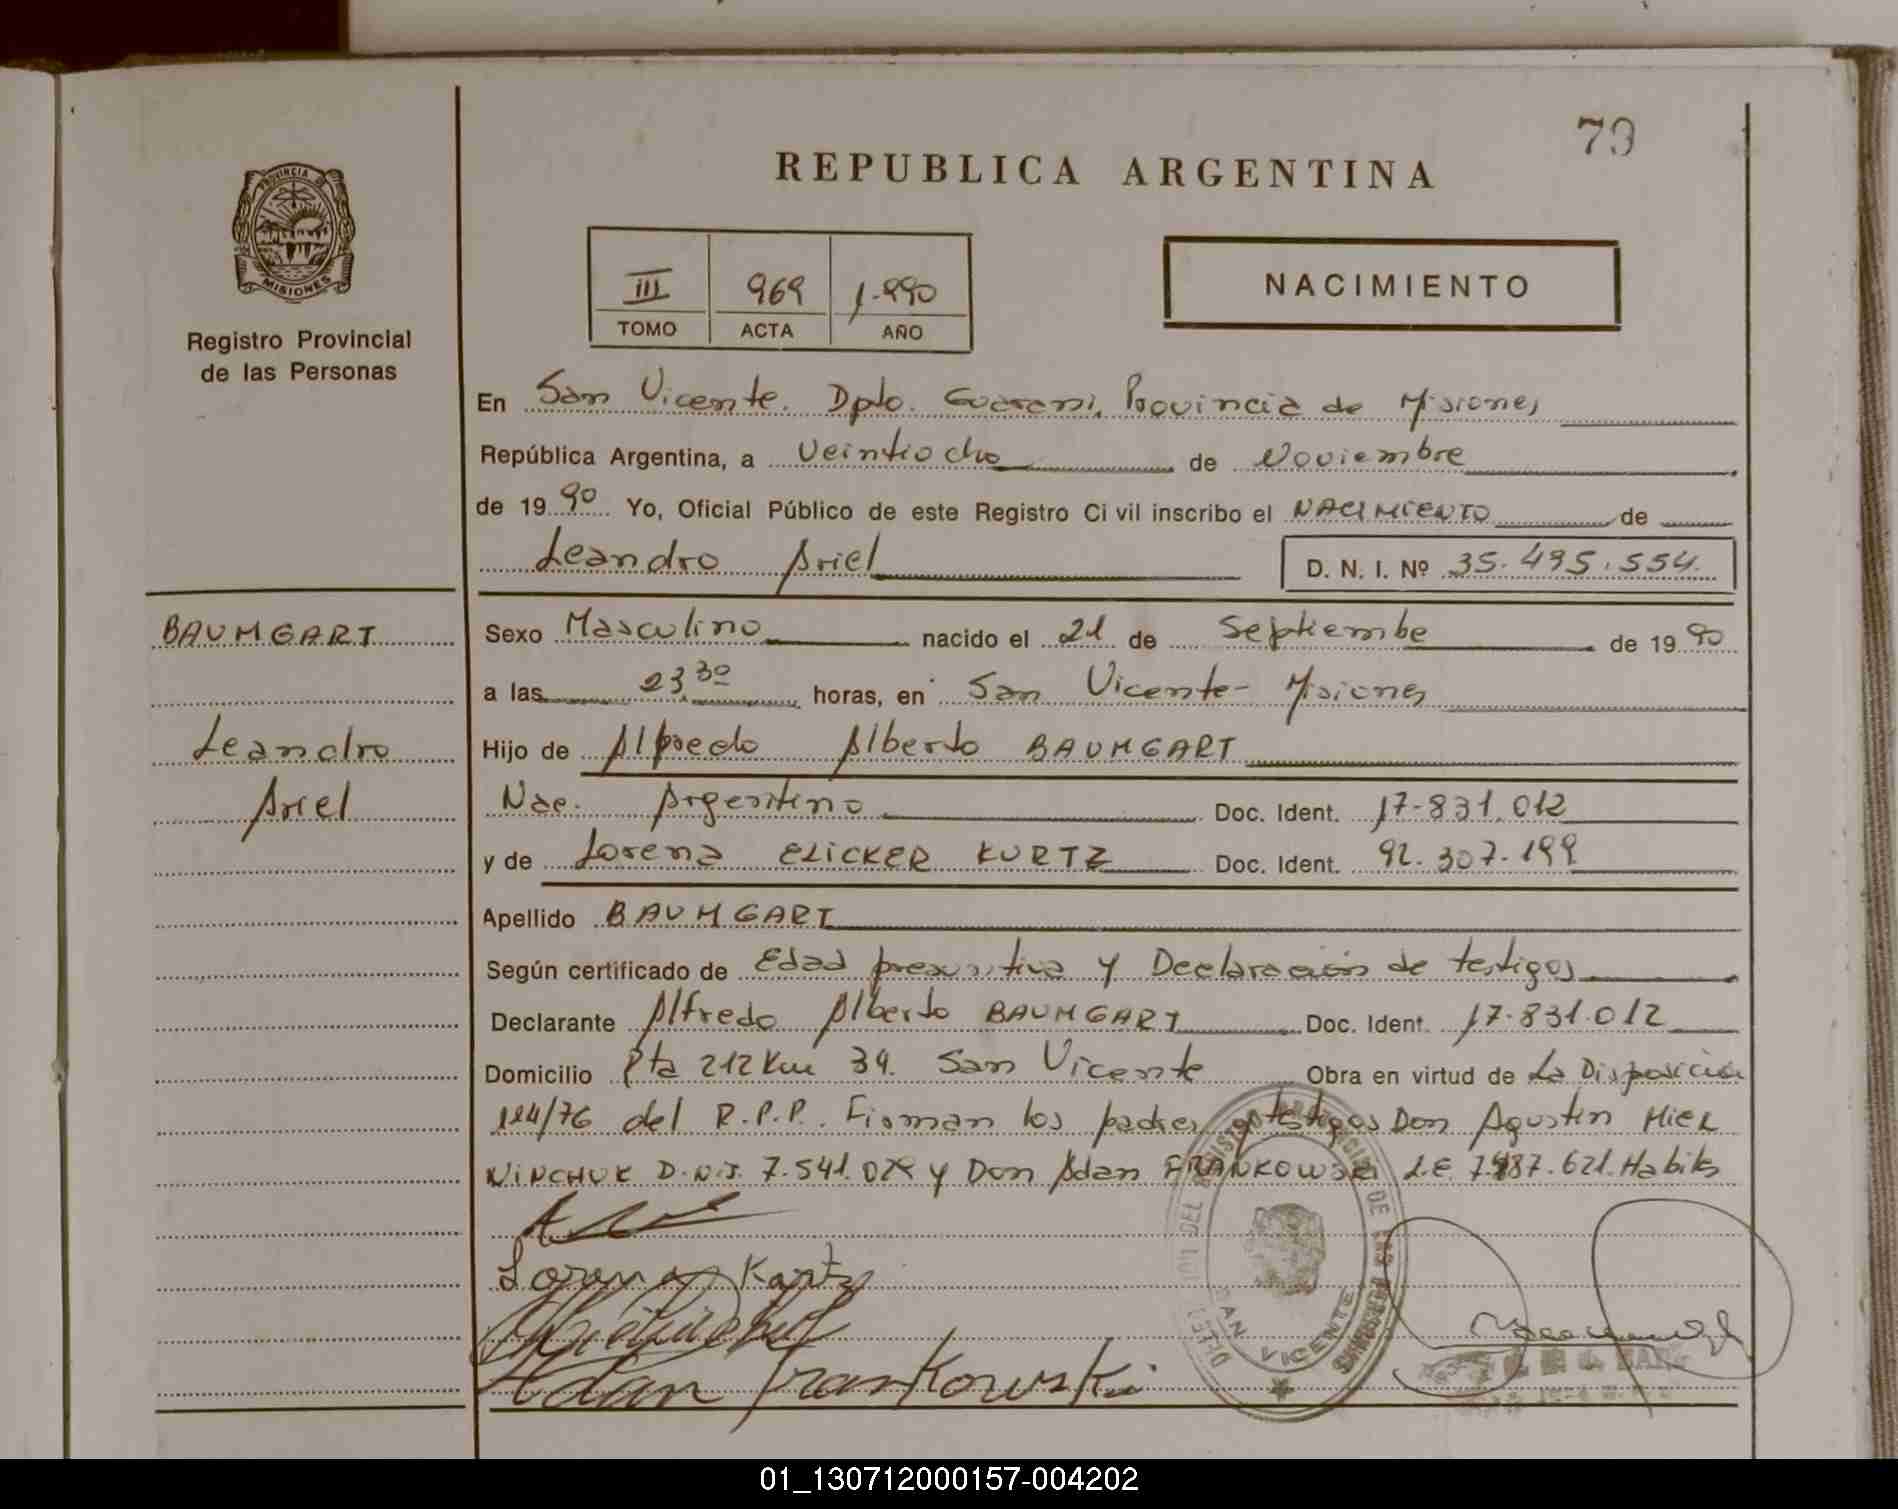 73
REPUBLICA ARGENTINA
PROVINCIA DE
MISIONES
Registro Provincial
de las Personas
III 969 1.990
TOMO ACTA AÑO
NACIMIENTO
En San Vicente. Dpto. Guarani, Provincia de Misiones
República Argentina, a veintiocho de Noviembre
de 1990 Yo, Oficial Público de este Registro Civil inscribo el NACIMIENTO de
Leandro Ariel D. N. I. Nº 35.495.554.
BAUMGART
Leandro
Ariel
Sexo Masculino nacido el 21 de Septiembe de 1990
a las 23,30 horas, en San Vicente - Misiones
Hijo de Alfredo Alberto BAUMGART
Nac. Argentino Doc. Ident. 17-831.012
y de Lorena ELICKER KURTZ Doc. Ident. 92.307.199
Apellido BAUMGART
Según certificado de Edad presuntiva y Declaración de testigos
Declarante Alfredo Alberto BAUMGART Doc. Ident. 17.831.012
Domicilio Rta 212 Km 34. San Vicente Obra en virtud de La Disposición
114/76 del R.P.P. Firman los padres y testigos Don Agustin MIER
NINCHUK D.N.I. 7.541. y Don Adan FRANKOWSKI L.E. 621. Habiles
Lorena Kurtz
Adan Frankowski
SAN VICENTE
01_130712000157-004202